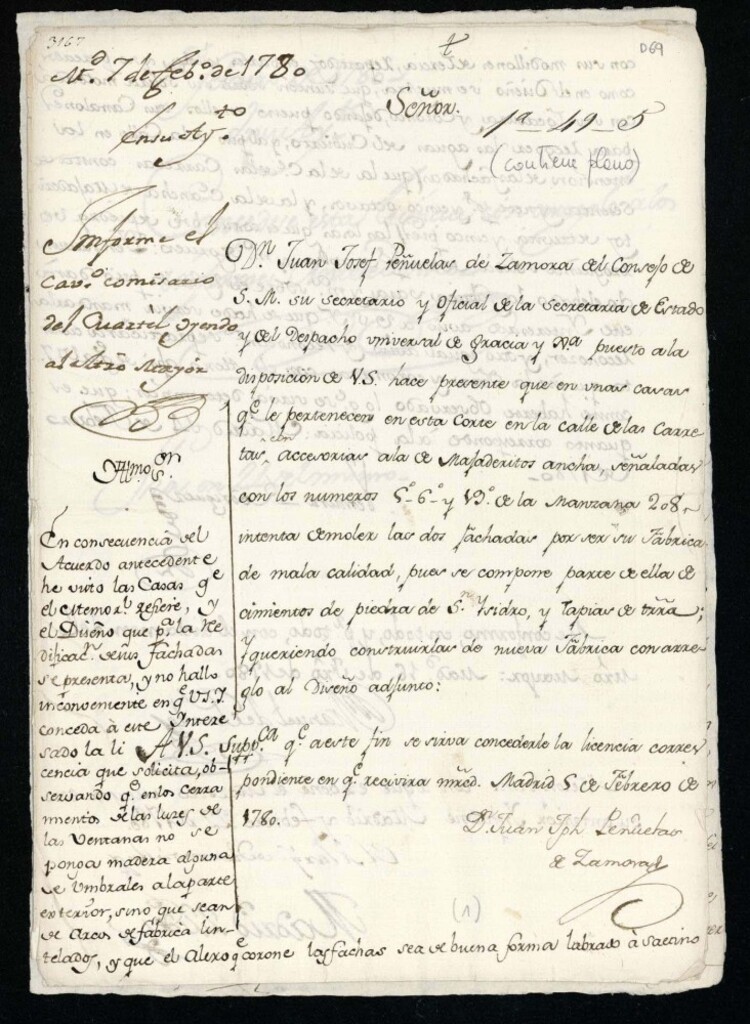 3167
D69
M.d 7 de feb.o de 1780
En su Ay.to
Señor.
1a-49-5
(contiene plano)
Informe el
Cav.o comisario
del Quartel oyendo
al Mro Mayor
D.n Juan Josef Peñuelas de Zamora del Consejo de
S. M. su secretario y Oficial de la Secretaria de Estado
y del Despacho universal de gracia y Jta. puesto a la
disposicion de V.S. hace presente que en unas casas
q.e le pertenecen en esta Corte en la calle de las Carre
tas, con accesorias a la de Majaderitos ancha, señaladas
con los numeros 5.o 6.o y 19.o de la Manzana 208,
intenta demoler las dos fachadas por ser su Fabrica
de mala calidad, pues se compone parte de ella de
cimientos de piedra de S.n Ysidro, y tapias de trra;
y queriendo construirlas de nueva Fabrica con arre
glo al Diseño adjunto:
A V.S. Supp.ca q.e a este fin se sirva concederle la licencia corres
pondiente en q.e recivira mrcd. Madrid 5 de Febrero de
1780.
D.n Juan Jph Peñuelas
de Zamora
(1)
Yllmo S.or
En consecuencia del
Acuerdo antecedente
he visto las Casas q.e
el Memor.l refiere, y
el Diseño que p.a la Re
dificac.n de sus fachadas
se presenta, y no hallo
inconveniente en q.e V.S.Y.
conceda à este Intere
sado la li
cencia que solicita, ob-
servando q.e en los cerra
mientos de las luzes de
las Ventanas no se
ponga madera alguna
de Umbrales a la parte
exterior, sino que sean
de Arcos de fabrica lin-
telados, y que el Alero q.e corone las fachas sea de buena forma labrado à Saccino